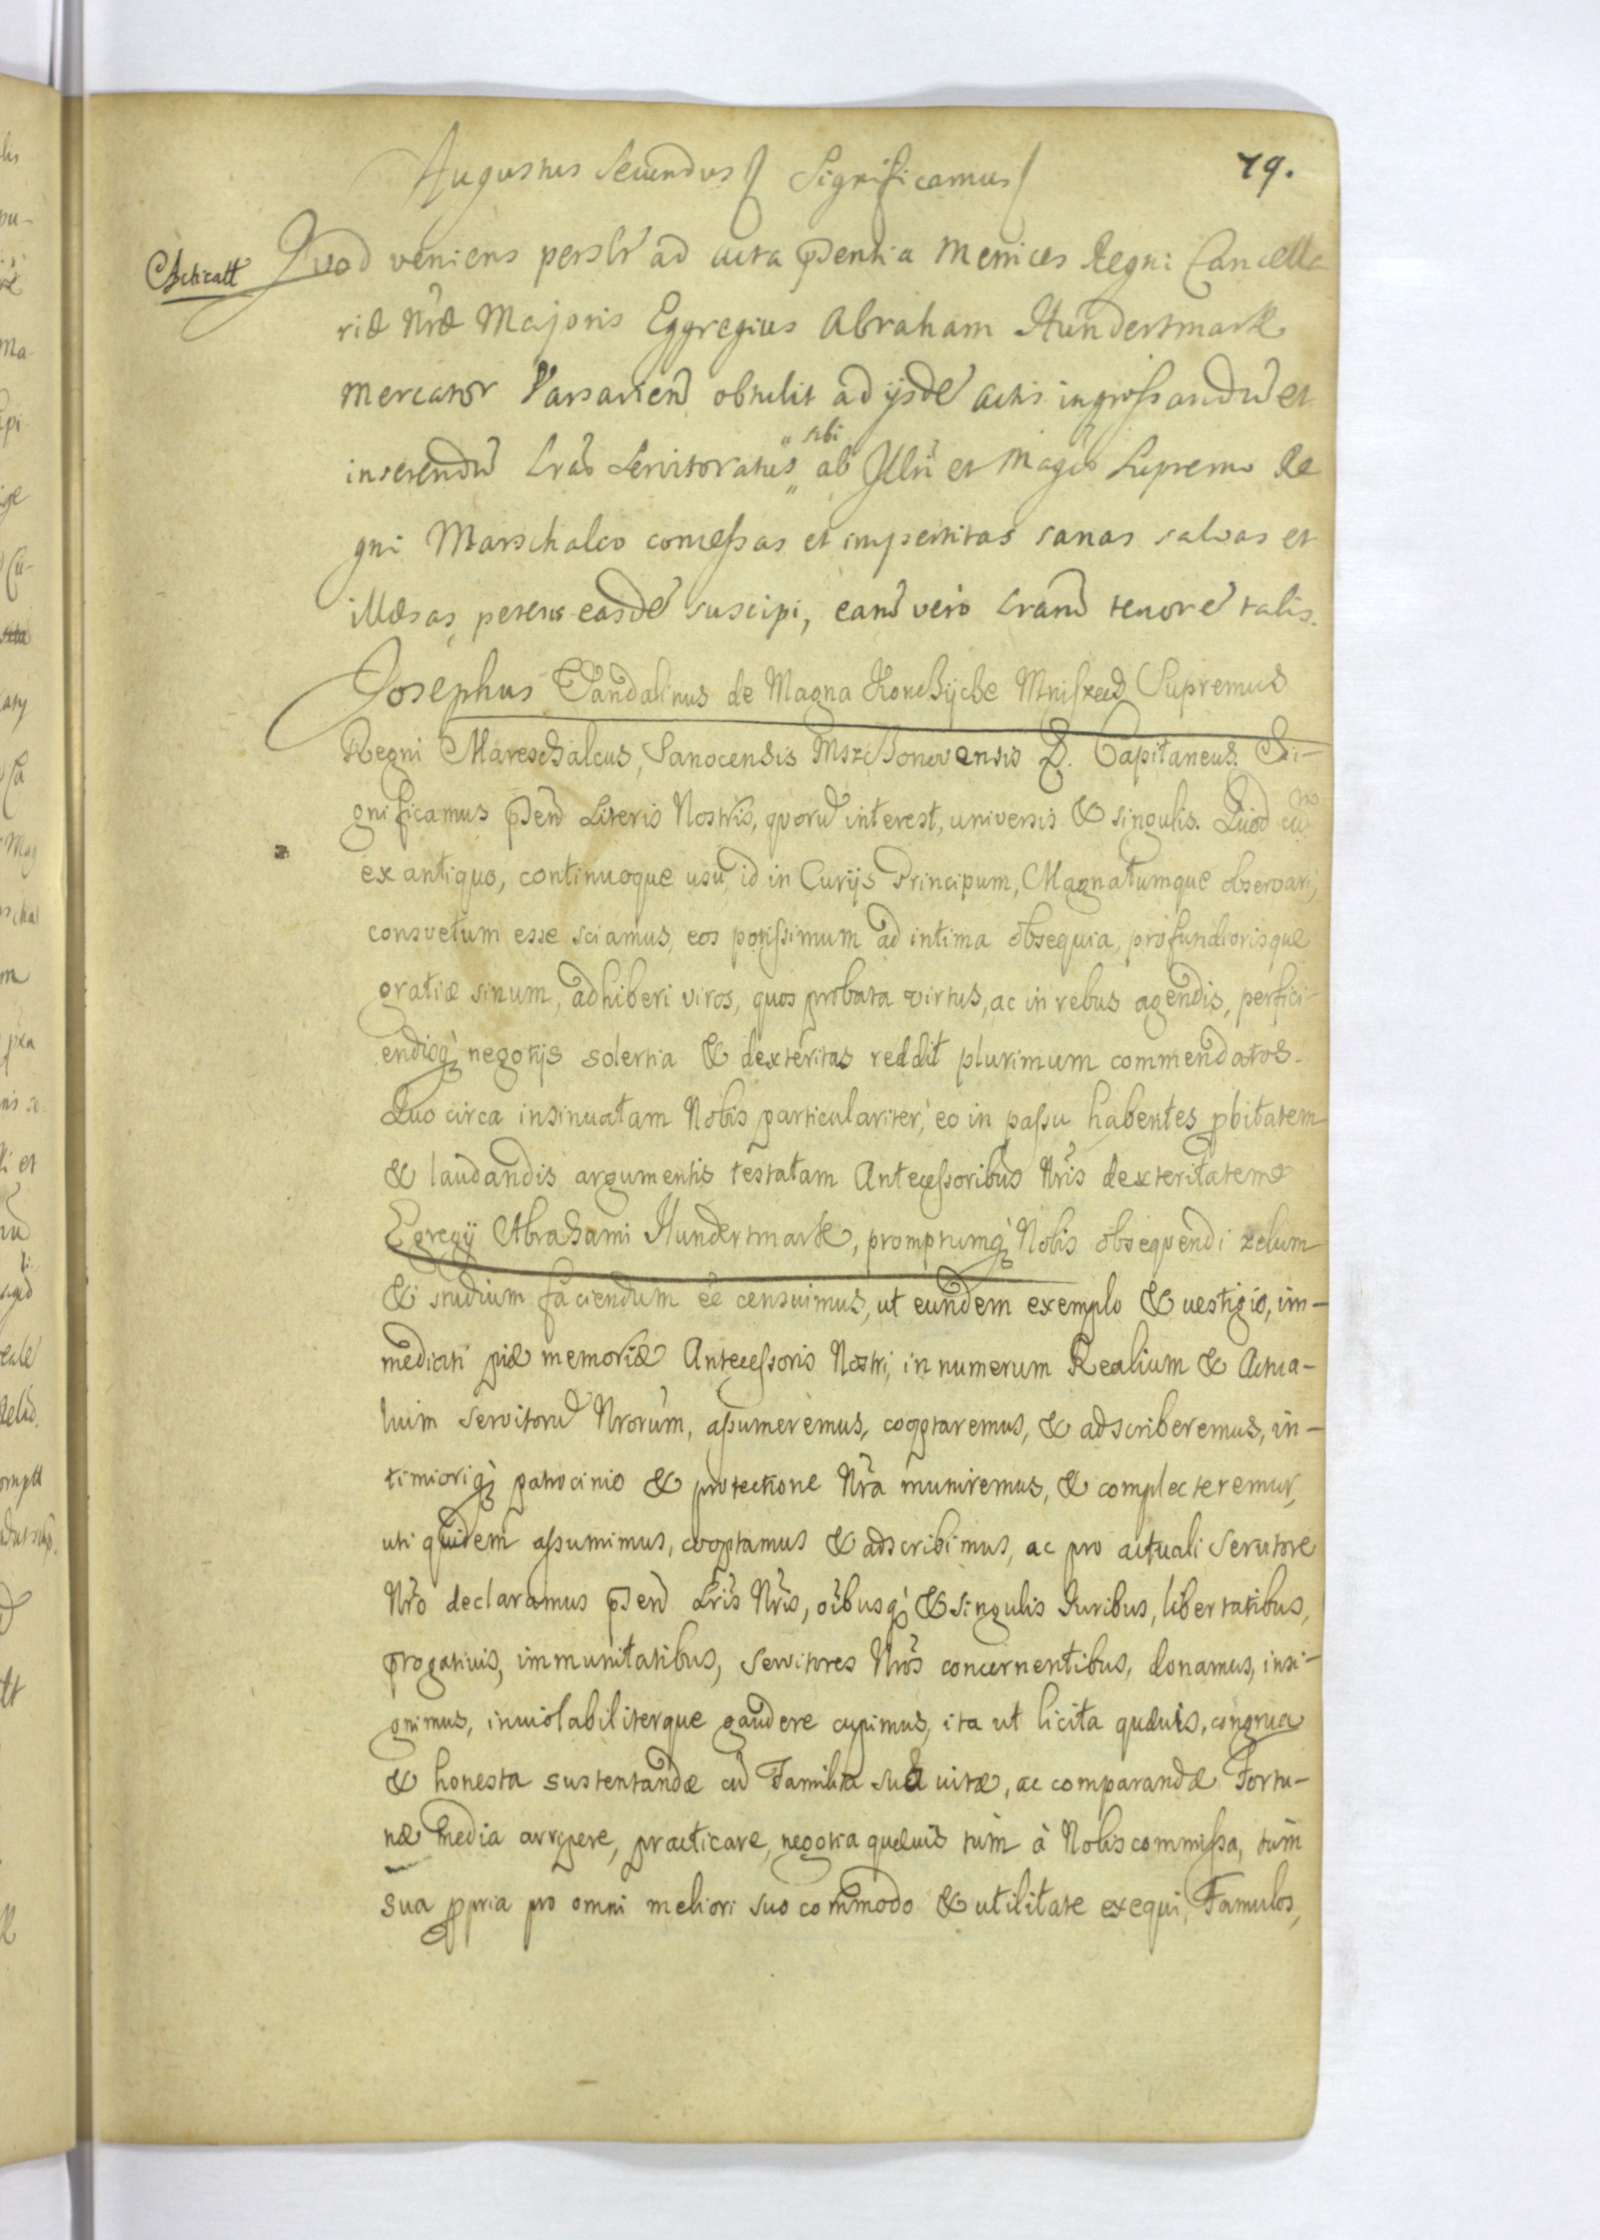 Augustus Secundus Significamus
79.
Quod veniens perslr ad acta pntia Metrices Regni Cancella
riæ Nræ Majoris Eggregius Abraham Hundertmark
Mercator Varsavien obtulit ad ijsde actis ingrossandu et
inserendu Lras Servitoratus sibi ab Illri et Magco Supremo Re
gni Marschalco concessas et impertitas sanas salvas et
illæsas, petens easde suscipi, earu vero Lraru tenore talis.
Josephus Vandalinus de Magna Konchijche Mniszech Supremus
Regni Mareschalcus, Sanocensis Mszchonovensis &. Capitaneus. Si-
gnificamus pnten Literis Nostris, quoru interest, universis & singulis. Quod cu
ex antiquo, continuoque usu, id in Curijs Principum, Magnatumque observari,
consvetum esse sciamus, eos potissimum ad intima obsequia, profundiorisque
gratiæ sinum, adhiberi viros, quos probata virtus, ac in rebus agendis, perfici-
endisq negotijs solertia & dexteritas reddit plurimum commendatos.
Quo circa insinuatam Nobis particulariter, eo in passu habentes pbitatem
& laudandis argumentis testatam Antecessoribus Nris dexteritatem
Egregij Abrahami Hundertmark, promptumq Nobis obsequendi zelum
& studium faciendum ee censuimus, ut eundem exemplo & uestigio, im-
mediati piæ memoriæ Antecessoris Nostri, in numerum Realium & Actua-
lium servitoru Nrorum, assumeremus, cooptaremus, & adscriberemus, in-
timioriq patrocinio & protectione Nra muniremus, & complecteremur,
uti quidem assumimus, cooptamus & adscribimus, ac pro actuali Servitore
Nro declaramus pnten Lris Nris, oibusq & singulis Juribus, libertatibus,
progativis, immunitatibus, Servitores Nros concernentibus, donamus, insi-
gnimus, inviolabiliterque gaudere cupimus, ita ut licita quævis, congrua
& honesta sustentandæ cu Familia sua vitæ, ac comparandæ Fortu-
næ media arripere, practicare, negotia quævis tum à Nobis commissa, tum
sua ppria pro omni meliori suo commodo & utilitate exequi, Famulos,